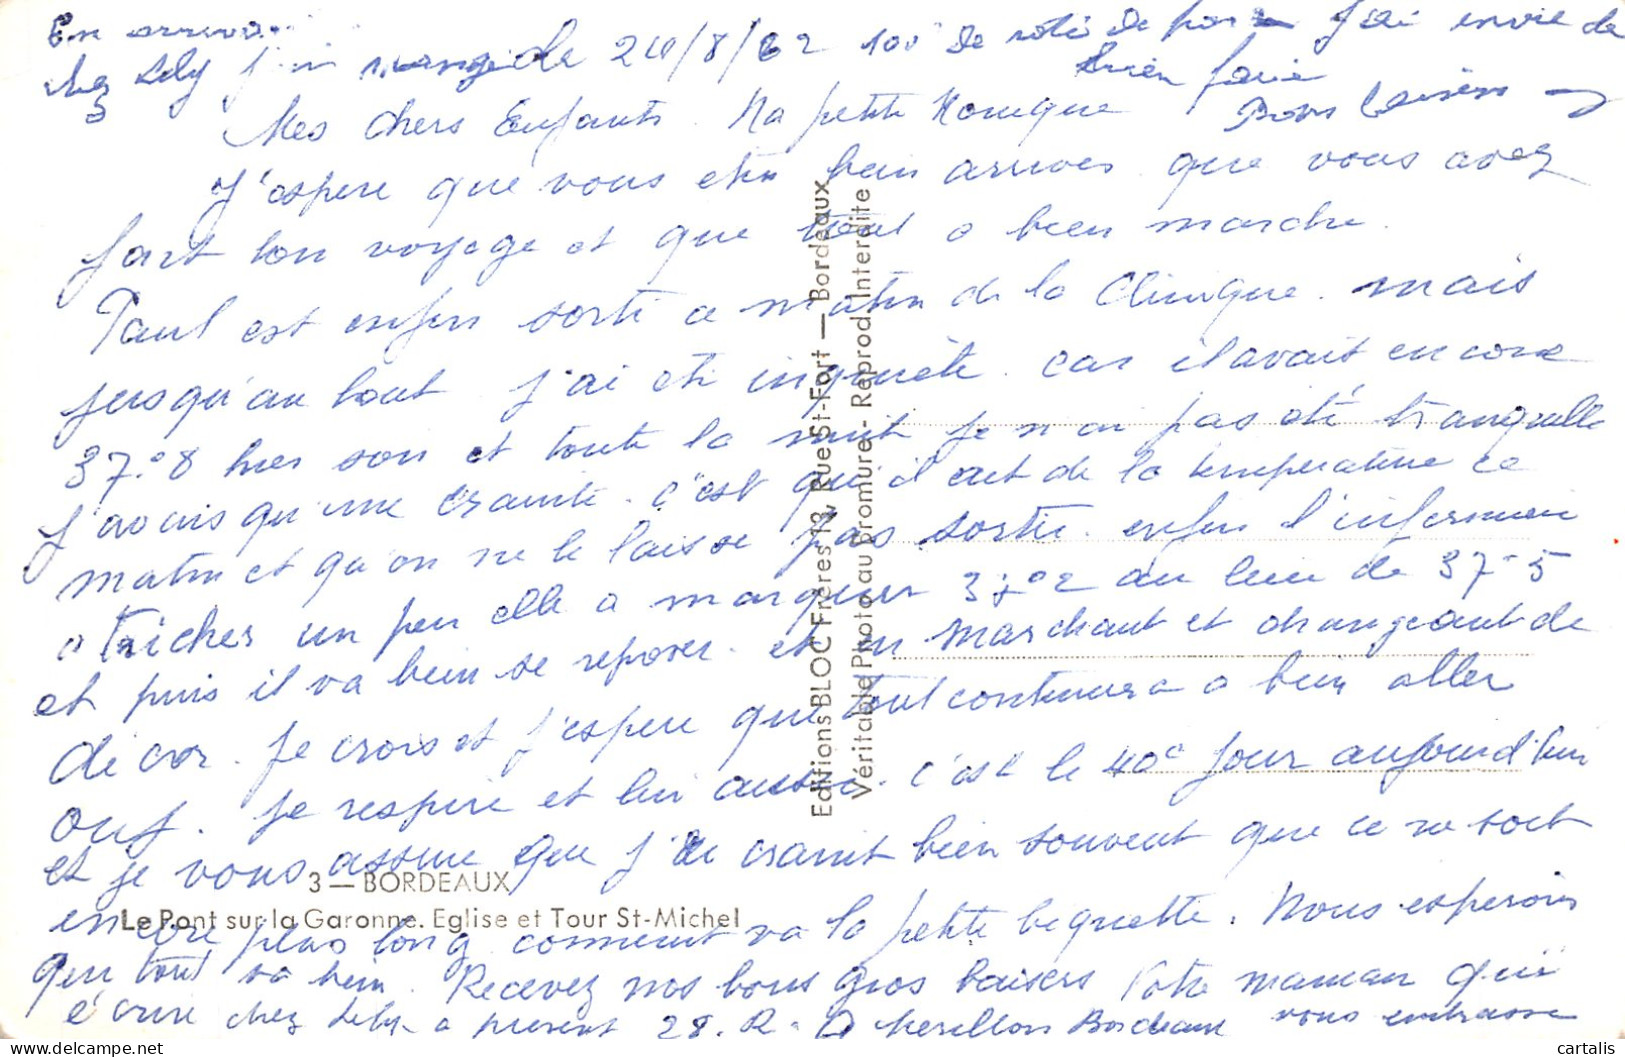 En arrivant
chez Lily j'ai mangé de 24/8/62 100 de roti de porc J'ai envie de
bien faire
Bons baisers
Mes chers Enfants. Ma petite Monique
J'espere que vous etes bien arrives que vous avez
fait bon voyage et que tout a bien marche.
Paul est enfin sorti ce matin de la Clinique. mais
jusqu'au bout j'ai ete inquiète. car il avait encore
37.°8 hier soir et toute la nuit je n'ai pas été tranquille
j'avais qu'une crainte. c'est qu'il eut de la temperature ce
matin et qu'on ne le laisse pas sortir. enfin l'infirmiere
a tricher un peu elle a marquer 37°2 au lieu de 37°5
et puis il va bien se reposer. et en marchant et changeant de
decor. Je crois et j'espere que tout continuera a bien aller
ouf. Je respire et lui aussi. c'est le 40e jour aujourd'hui
et je vous assure que j'ai craint bien souvent que ce ne soit
encore plus long comment va la petite biquette. Nous esperons
que tout va bien. Recevez nos bons gros baisers Votre maman qui
vous embrasse
écrire chez Lily a present 28. R. Bordeaux
3 — BORDEAUX
Le Pont sur la Garonne. Eglise et Tour St-Michel
Editions BLOC Frères 13, Rue St-Fort — Bordeaux
Véritable Photo au bromure - Reprod. Interdite
cartalis